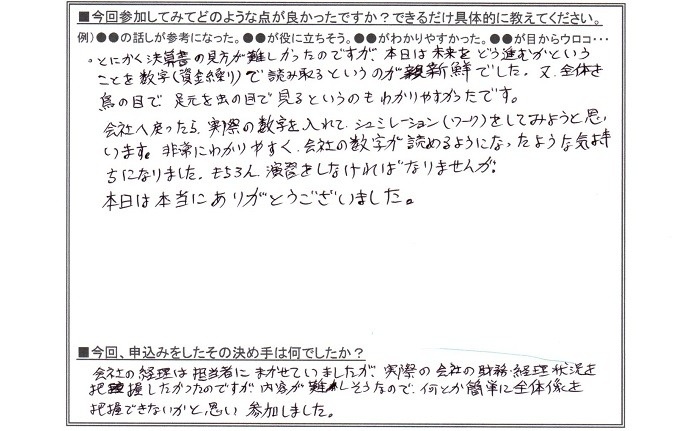 ■今回参加してみてどのような点が良かったですか？できるだけ具体的に教えてください。
例）●●の話しが参考になった。●●が役に立ちそう。●●がわかりやすかった。●●が目からウロコ・・・
。とにかく決算書の見方が難しかったのですが、本日は未来をどう進むかという
ことを数字(資金繰り)で読み取るというのが新鮮でした。又、全体を
鳥の目で、足元を虫の目で見るというのもわかりやすかったです。
会社へ戻ったら、実際の数字を入れて、シュミレーション(ワーク)をしてみようと思い
います。非常にわかりやすく、会社の数字が読めるようになったような気持
ちになりました。もちろん、演習をしなければなりませんが。
本日は本当にありがとうございました。
■今回、申込みをしたその決め手は何でしたか？
会社の経理は担当者にまかせていましたが、実際の会社の財務・経理状況を
把握したかったのですが内容が難しそうなので、何とか簡単に全体像を
把握できないかと思い参加しました。